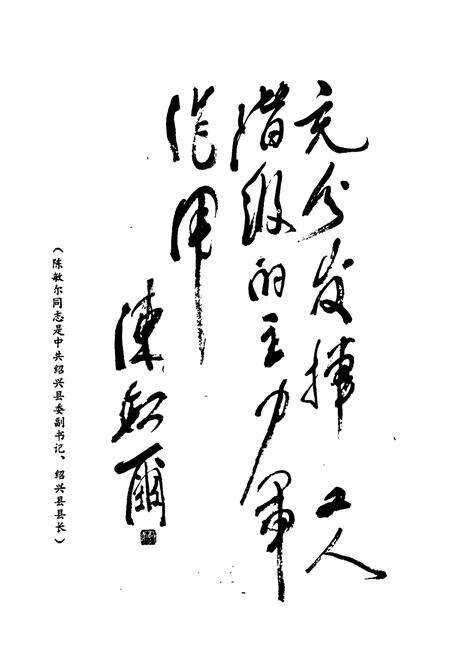 充分发挥工人
阶级的主力军
作用
陈敏爾
（陈敏尔同志是中共绍兴县委副书记、绍兴县县长）